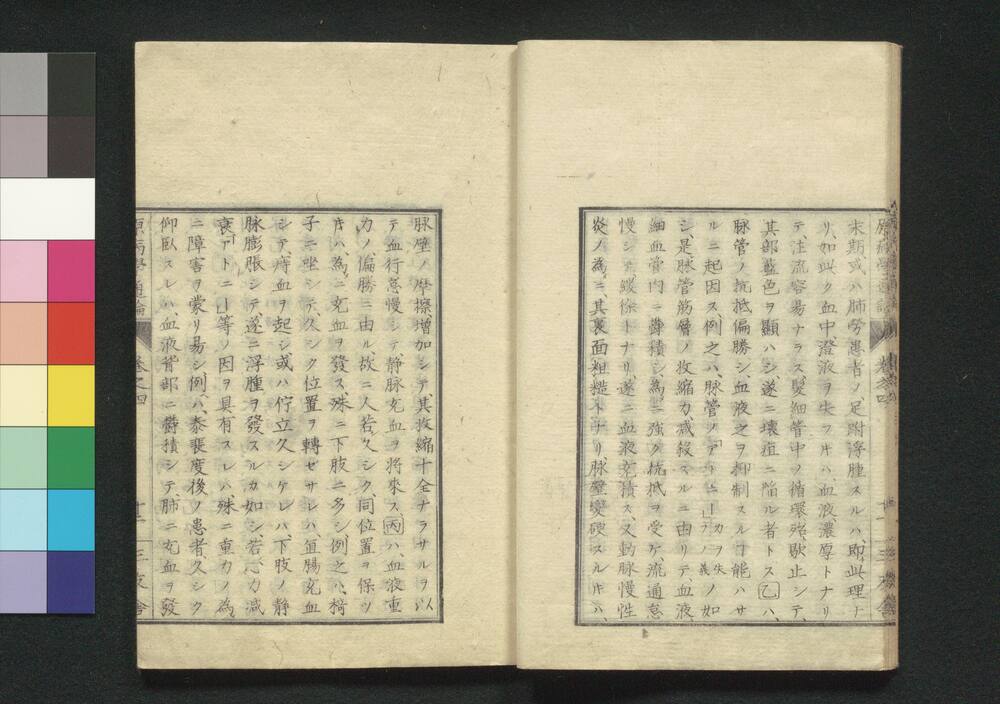 末期或ハ肺勞患者ノ足跗浮腫スルハ、即此理ナ
リ、如此ク血中澄液ヲ失フキハ、血液濃厚トナリ
テ、注流容易ナラス、髮細管中ノ循環殆歇止シテ、
其部藍色ヲ顯ハシ、遂ニ壊疽ニ陥ル者トス、乙ハ、
脉管ノ抗抵偏勝シ、血液之ヲ抑制スルヿ能ハサ
ルニ起因ス、例之ハ、脉管ノ「アトニー」力ヲ失フノ義ノ如
シ、是脉管筋層ノ收縮力、減殺スルニ由リテ、血液
細血管内ニ欝積シ、為ニ強ク抗抵ヲ受ケ、流通怠
慢シテ、緩徐トナリ、遂ニ血液充積ス、又動脉慢性
炎ノ為ニ、其裏面粗糙トナリ、脉壁變硬スルキハ、
脉壁ノ摩擦増加シテ、其收縮十全ナラサルヲ以
テ、血行怠慢シテ、静脉充血ヲ將來ス、丙ハ、血液重
力ノ偏勝ニ由ル、故ニ人若久シク、同位置ヲ保ツ
キハ、為ニ充血ヲ發ス、殊ニ下肢ニ多シ、例之ハ、椅
子ニ坐シテ、久シク位置ヲ轉セサレハ、直腸充血
シテ、痔血ヲ起シ、或ハ佇立久シケレハ、下肢ノ静
脉膨脹シテ、遂ニ浮腫ヲ發スルカ如シ、若心力減
衰「アトニー」等ノ因ヲ具有スレハ、殊ニ重力ノ為
ニ障害ヲ蒙リ易シ、例ハ、泰裴度後ノ患者、久シク
仰臥スレハ、血液背部ニ欝積シテ、肺ニ充血ヲ發
原病學通論
巻之四
三友舎